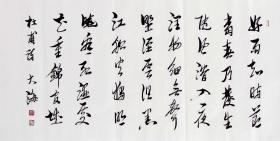 好雨知时节
当春乃发生
随风潜入夜
润物细无声
野径云俱黑
江船火独明
晓看红湿处
花重锦官城
杜甫诗 大海